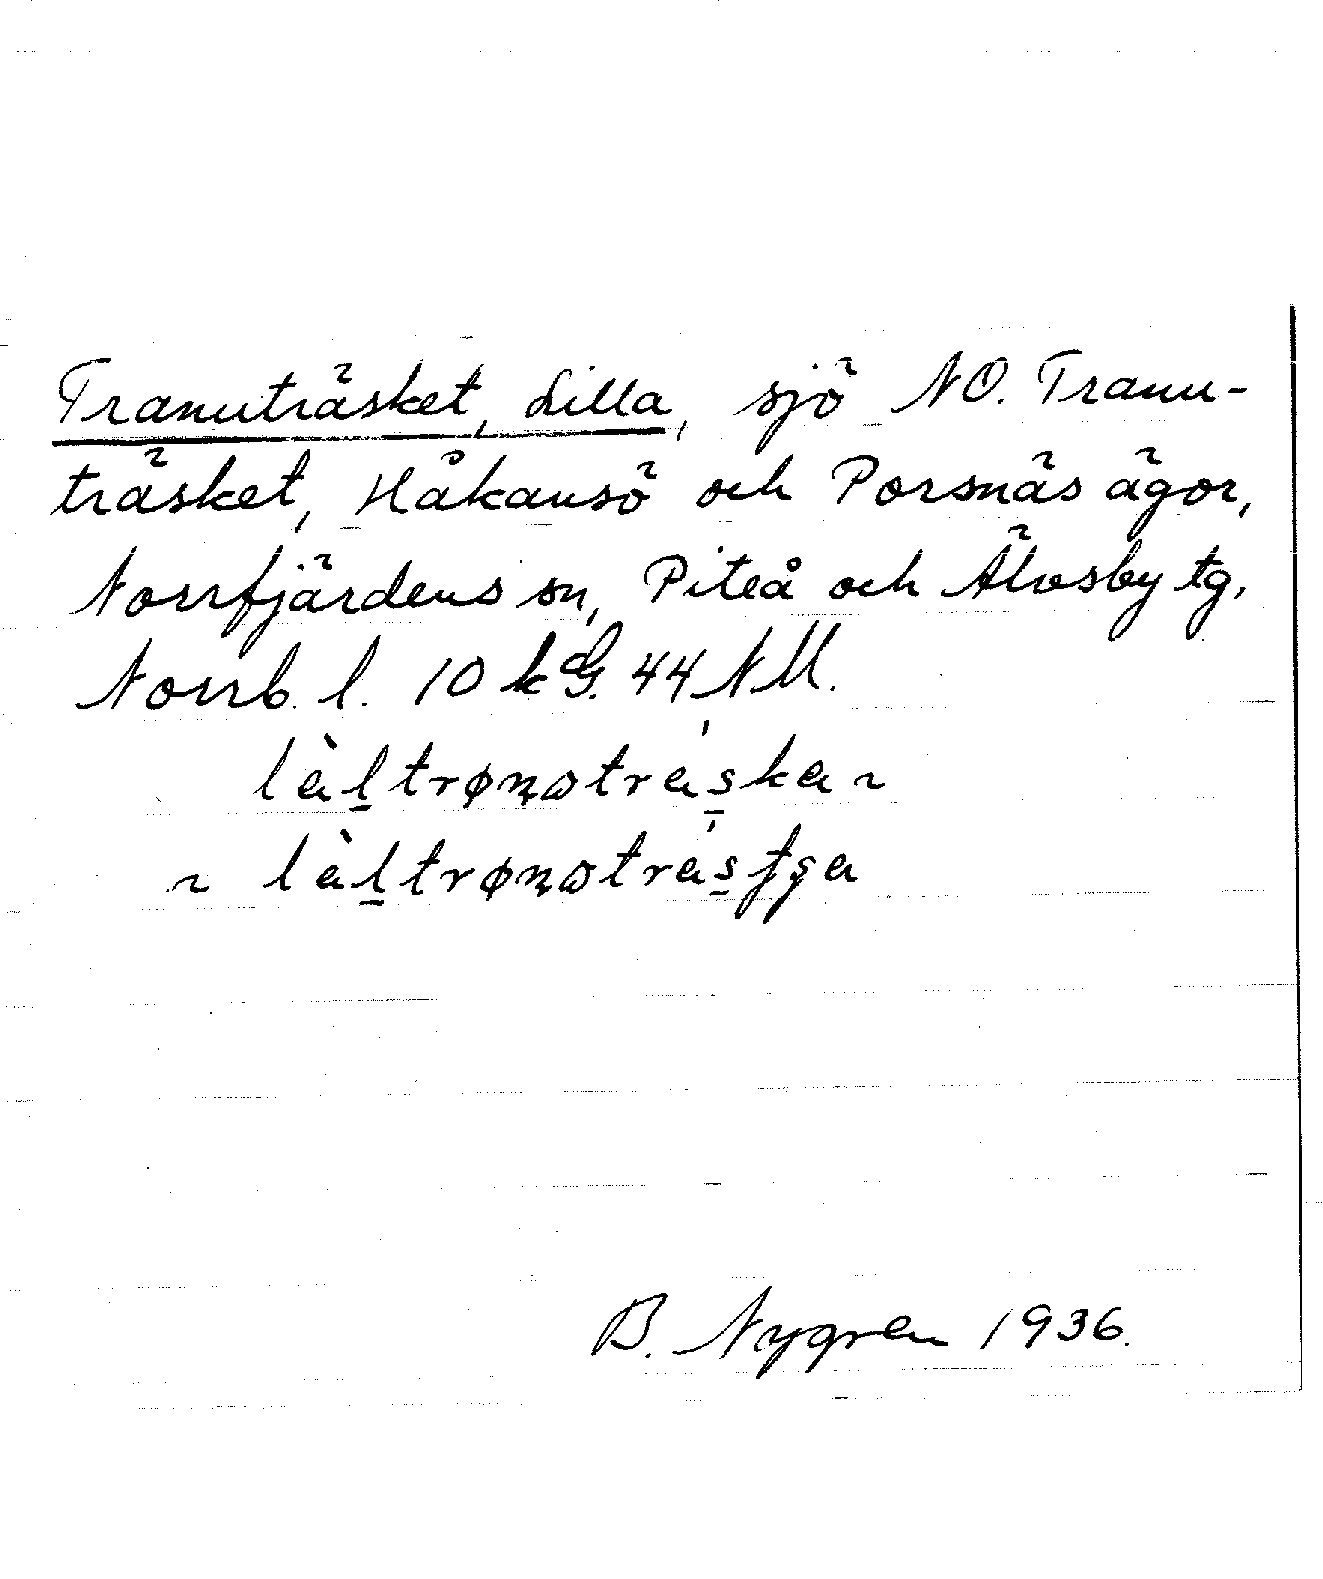 Tranuträsket, Lilla, sjö NO. Tranu-
träsket, Håkansö och Porsnäs ägor,
Norrfjärdens sn, Piteå och Älvsby tg,
Norrb. l. 10 k G. 44 NM.
là̀l̲trønɷtrás̲ka ~
~ là̀l̲trønɷtrás̲tʂa
B. Nygren 1936.